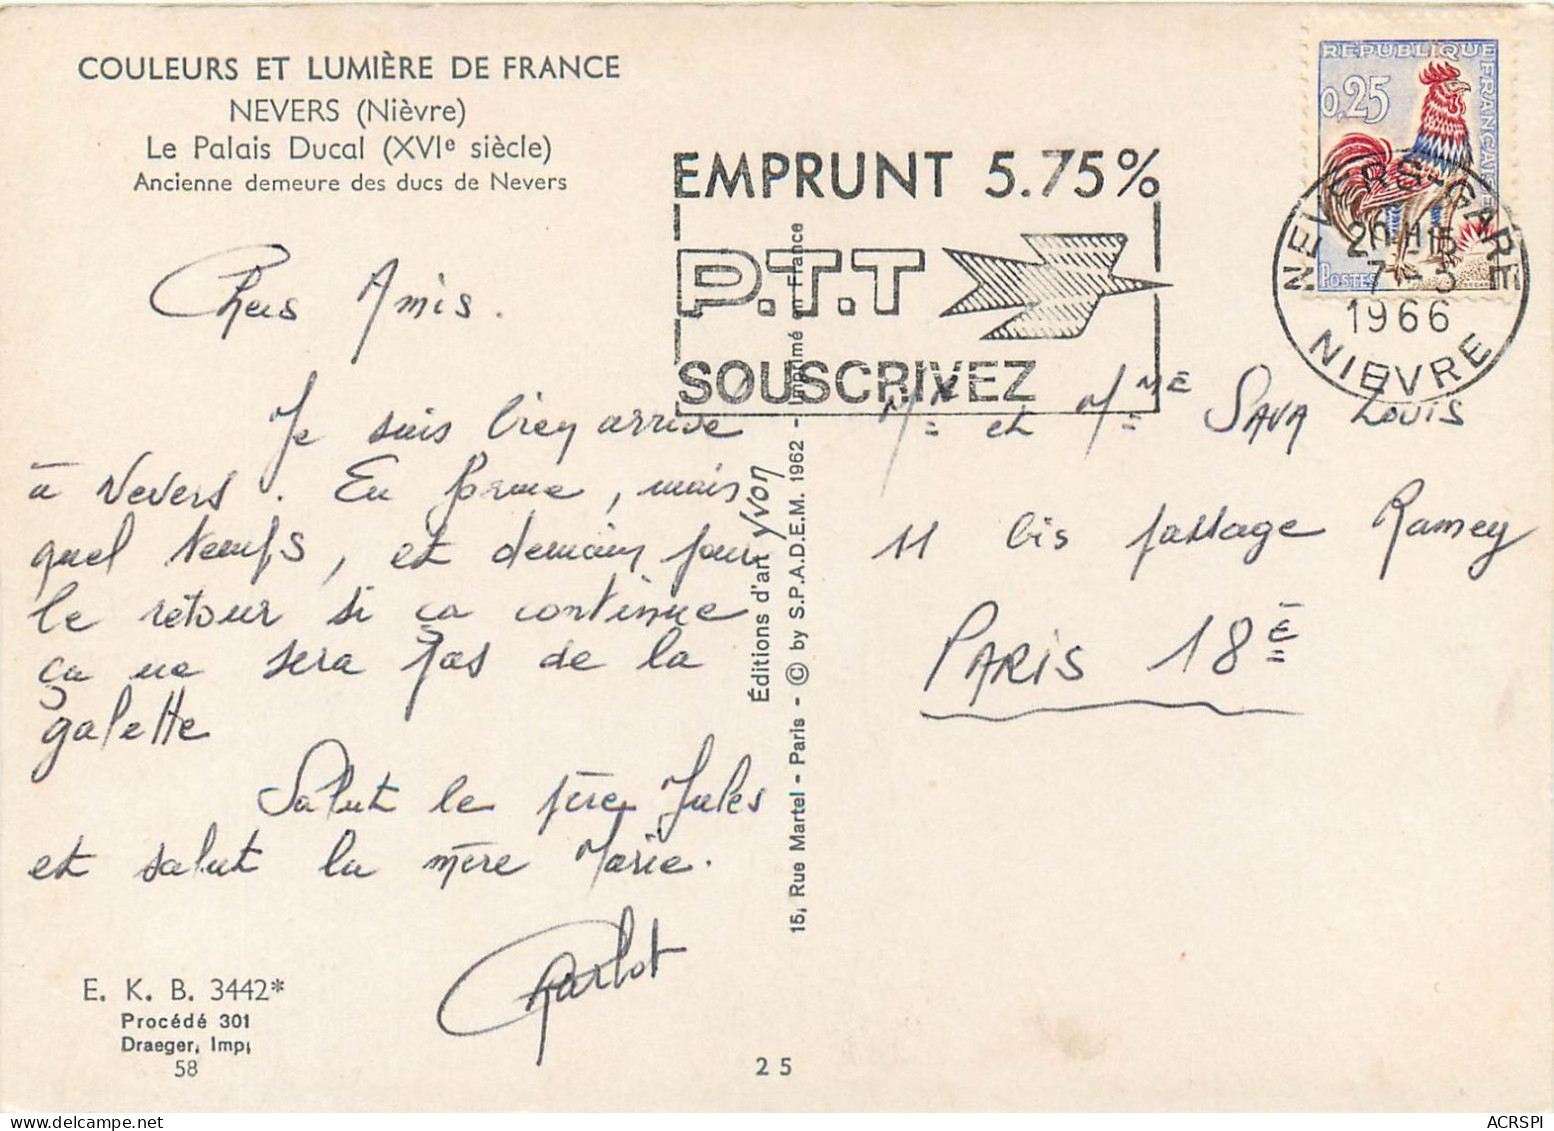 COULEURS ET LUMIÈRE DE FRANCE
NEVERS (Nièvre)
Le Palais Ducal (XVIe siècle)
Ancienne demeure des ducs de Nevers
Chers Amis.
Je suis bien arrivé
à Nevers. En forme, mais
quel temps, et demain pour
le retour si ca continue
ça ne sera pas de la
galette
Salut le père Jules
et salut la mère Marie.
Charlot
E. K. B. 3442*
Procédé 301
Draeger, Imp.
58
25
Éditions d'art Yvon
15, Rue Martel - Paris - © by S.P.A.D.E.M. 1962 - Imprimé en France
EMPRUNT 5.75%
P.T.T
SOUSCRIVEZ
RÉPUBLIQUE FRANÇAISE
0,25
POSTES
NEVERS-GARE
1966
NIEVRE
Mr et Mme SAVA LOUIS
11 bis passage Ramey
PARIS 18E
ACRSPI